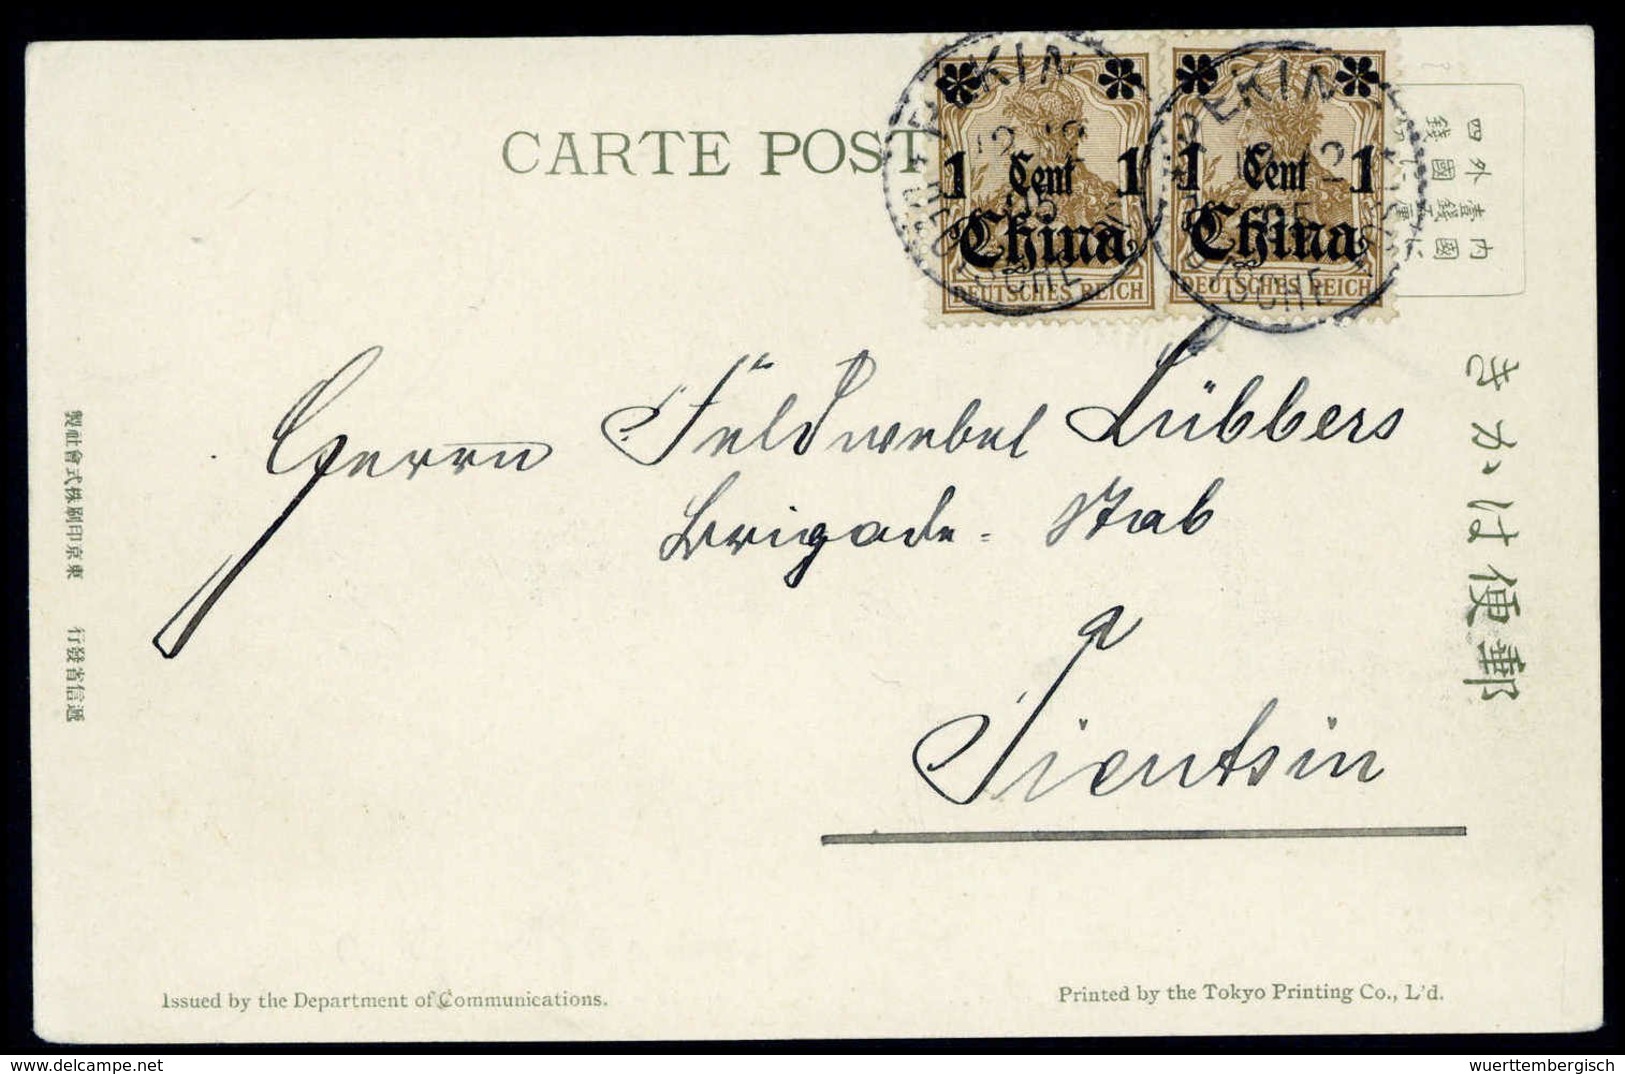 CARTE POST
PEKIN
12 12
05
DEUTSCHE
1 Cent 1
China
DEUTSCHES REICH
PEKIN
1 Cent 1
China
DEUTSCHES REICH
内國
外國
四錢
きかは便郵
Herrn Feldwebel Lübbers
Brigade-Stab
Tientsin
製社會式株刷印京東
行發省信遞
Issued by the Department of Communications.
Printed by the Tokyo Printing Co., L'd.
wuerttembergisch